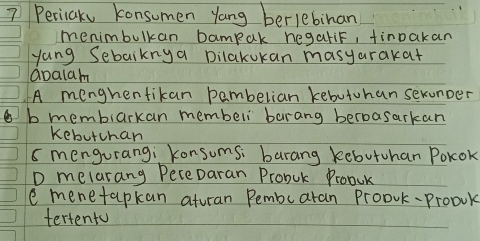 7 Perilaku konsumen yang berlebihan
menimbulkan dampak negatif, tindakan
yang Sebaiknya Dilakukan masyarakat
adalah
A menghentikan pambelian kebutuhan sekunder
b membiarkan membeli barang berdasarkan
kebutuhan
C mengurangi konsumsi barang kebutuhan Pokok
D melarang Peredaran Produk Produk
e menetapkan aturan Pembuatan Produk-Produk
tertentu